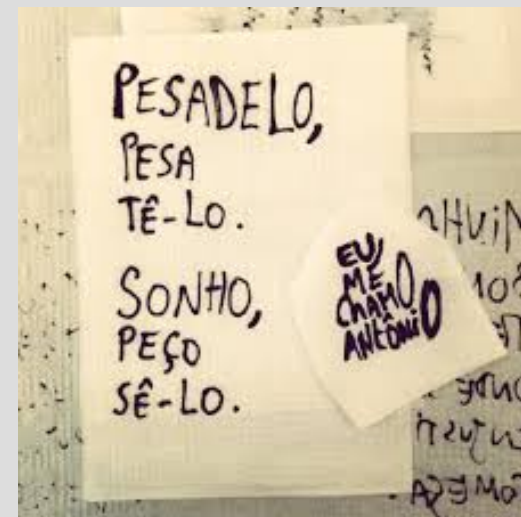 PESADELO,
PESA
TÊ-LO.
SONHO,
PEÇO
SÊ-LO.
EU
ME
CHAMO
ANTÔNIO